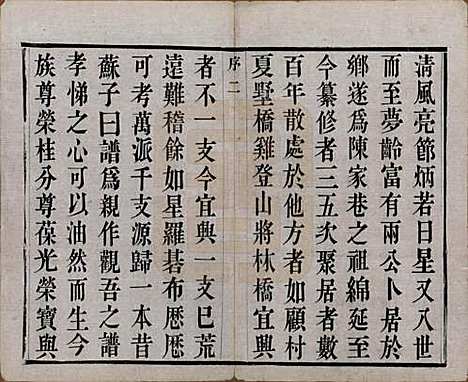 清風亮節炳若日星又八世
而至夢齡富有兩公卜居於
鄉遂爲陳家巷之祖綿延至
今纂修者三五次聚居者數
百年散處於他方者如顧村
夏墅橋雞登山將林橋宜興
序 二
者不一支今宜興一支巳荒
遠難稽餘如星羅碁布歷歷
可考萬派千支源歸一本昔
蘇子曰譜爲親作觀吾之譜
孝悌之心可以油然而生今
族尊榮桂分尊葆光榮寶與